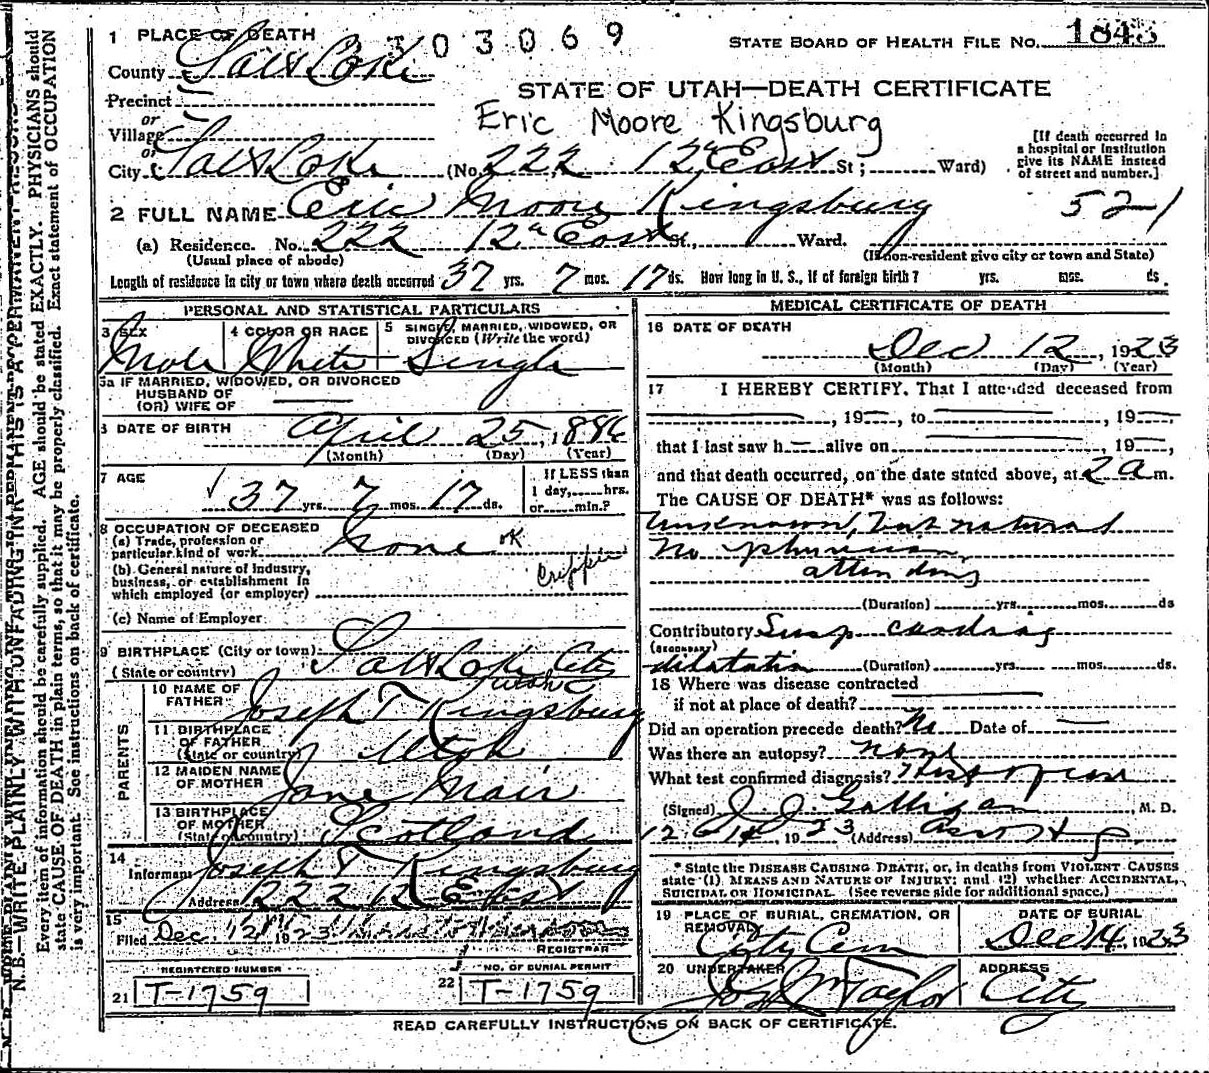 1 PLACE OF DEATH 303069 STATE BOARD OF HEALTH FILE No. 1843
County Salt Lake
STATE OF UTAH—DEATH CERTIFICATE
Precinct
or
Village
Eric Moore Kingsburg
[If death occurred in a hospital or institution give its NAME instead of street and number.]
or
City Salt Lake (No. 222 12th East St ; Ward)
2 FULL NAME Eric Moore Kingsbury 521
(a) Residence. No. 222 12th East St., Ward.
(Usual place of abode) (If non-resident give city or town and State)
Length of residence in city or town where death occurred 37 yrs. 7 mos. 17 ds. How long in U. S., if of foreign birth? yrs. mos. ds.
PERSONAL AND STATISTICAL PARTICULARS
3 SEX 4 COLOR OR RACE 5 SINGLE, MARRIED, WIDOWED, OR DIVORCED (Write the word)
Male White Single
5a IF MARRIED, WIDOWED, OR DIVORCED
HUSBAND OF
(OR) WIFE OF
6 DATE OF BIRTH April 25, 1886
(Month) (Day) (Year)
7 AGE 37 yrs. 7 mos. 17 ds. If LESS than 1 day, hrs. or min.?
8 OCCUPATION OF DECEASED
(a) Trade, profession or particular kind of work None OK
(b) General nature of Industry, business, or establishment in which employed (or employer) Cripple
(c) Name of Employer
9 BIRTHPLACE (City or town) Salt Lake City
(State or country) Utah
PARENTS
10 NAME OF FATHER Joseph T Kingsbury
11 BIRTHPLACE OF FATHER (State or country) Utah
12 MAIDEN NAME OF MOTHER Jane Mair
13 BIRTHPLACE OF MOTHER (State or country) Scotland
14 Informant Joseph T Kingsbury
Address 222 12 East
15 Filed Dec 12 1923
REGISTRAR
REGISTERED NUMBER NO. OF BURIAL PERMIT
21 T-1759 22 T-1759
MEDICAL CERTIFICATE OF DEATH
16 DATE OF DEATH
Dec 12, 1923
(Month) (Day) (Year)
17 I HEREBY CERTIFY, That I attended deceased from
, 19 , to , 19
that I last saw h alive on , 19 ,
and that death occurred, on the date stated above, at 2 a m.
The CAUSE OF DEATH* was as follows:
Unknown, but natural
No physician
attending
(Duration) yrs. mos. ds
Contributory Susp cardiac
(SECONDARY)
dilatation (Duration) yrs. mos. ds.
18 Where was disease contracted
if not at place of death?
Did an operation precede death? No Date of
Was there an autopsy? none
What test confirmed diagnosis?
(Signed) J. J. Galligan M. D.
12 14, 1923 (Address)
* State the DISEASE CAUSING DEATH, or, in deaths from VIOLENT CAUSES
state (1) MEANS AND NATURE OF INJURY; and (2) whether ACCIDENTAL,
SUICIDAL OR HOMICIDAL. (See reverse side for additional space.)
19 PLACE OF BURIAL, CREMATION, OR REMOVAL DATE OF BURIAL
City Cem Dec 14, 1923
20 UNDERTAKER ADDRESS
Jos Wm Taylor City
READ CAREFULLY INSTRUCTIONS ON BACK OF CERTIFICATE.
N. B.—WRITE PLAINLY WITH UNFADING INK—THIS IS A PERMANENT RECORD
Every item of information should be carefully supplied. AGE should be stated EXACTLY. PHYSICIANS should
state CAUSE OF DEATH in plain terms, so that it may be properly classified. Exact statement of OCCUPATION
is very important. See instructions on back of certificate.